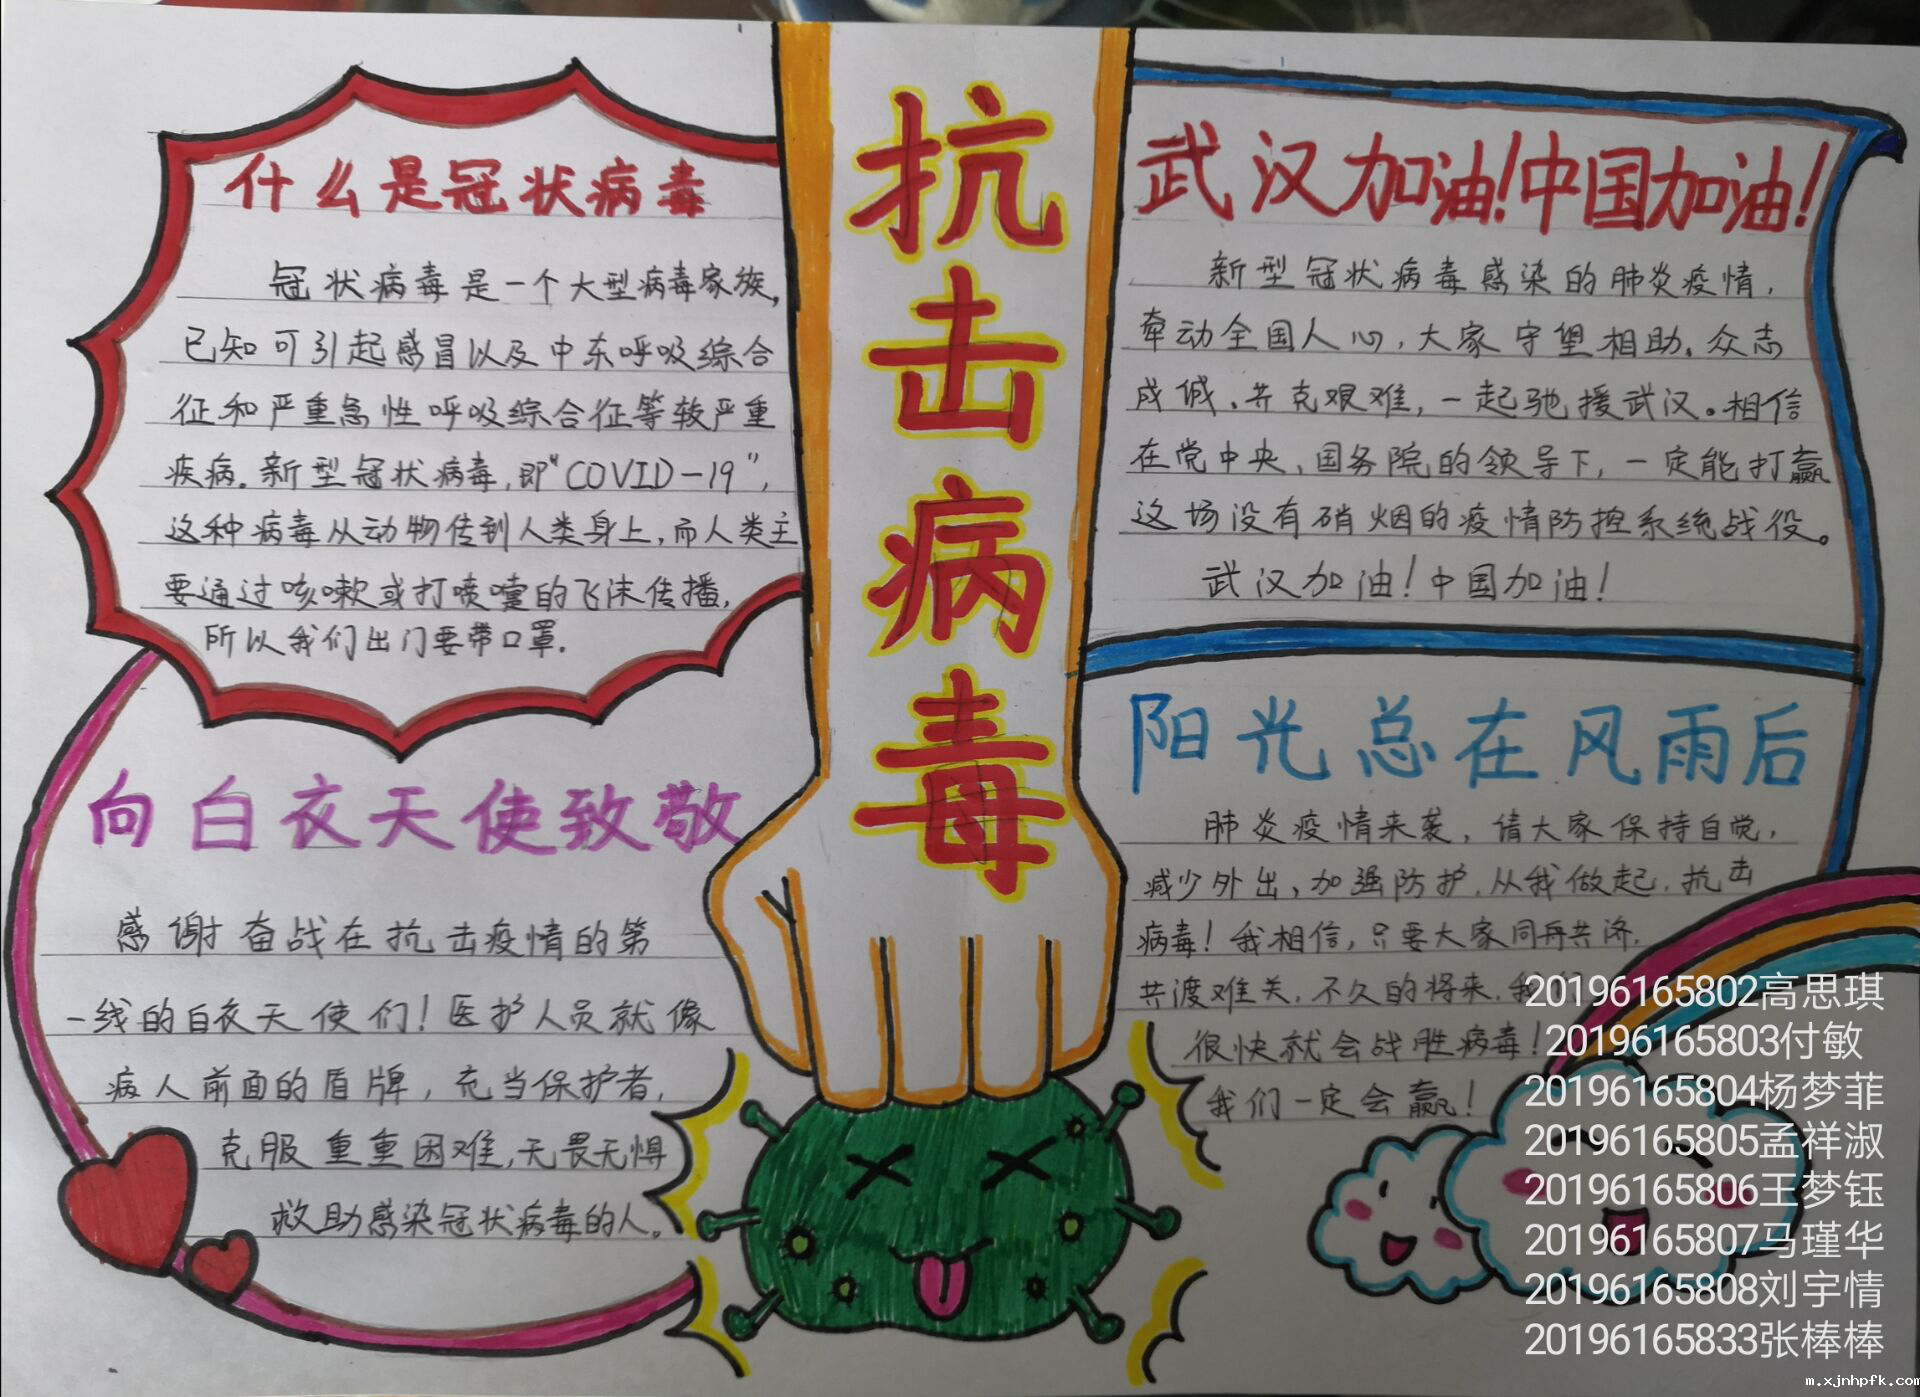 什么是冠状病毒
冠状病毒是一个大型病毒家族,
已知可引起感冒以及中东呼吸综合
征和严重急性呼吸综合征等较严重
疾病。新型冠状病毒,即“COVID-19”,
这种病毒从动物传到人类身上,而人类主
要通过咳嗽或打喷嚏的飞沫传播,
所以我们出门要带口罩.
抗
击
病
毒
武汉加油!中国加油!
新型冠状病毒感染的肺炎疫情,
牵动全国人心,大家守望相助、众志
成城、共克艰难,一起驰援武汉。相信
在党中央、国务院的领导下,一定能打赢
这场没有硝烟的疫情防控系统战役。
武汉加油!中国加油!
向白衣天使致敬
感谢奋战在抗击疫情的第
一线的白衣天使们!医护人员就像
病人前面的盾牌,充当保护者,
克服重重困难,无畏无惧
救助感染冠状病毒的人。
阳光总在风雨后
肺炎疫情来袭,请大家保持自觉,
减少外出、加强防护,从我做起,抗击
病毒!我相信,只要大家同舟共济,
共渡难关,不久的将来,我们
很快就会战胜病毒!
我们一定会赢!
20196165802高思琪
20196165803付敏
20196165804杨梦菲
20196165805孟祥淑
20196165806王梦钰
20196165807马瑾华
20196165808刘宇情
20196165833张棒棒
m.xjnhpfk.com